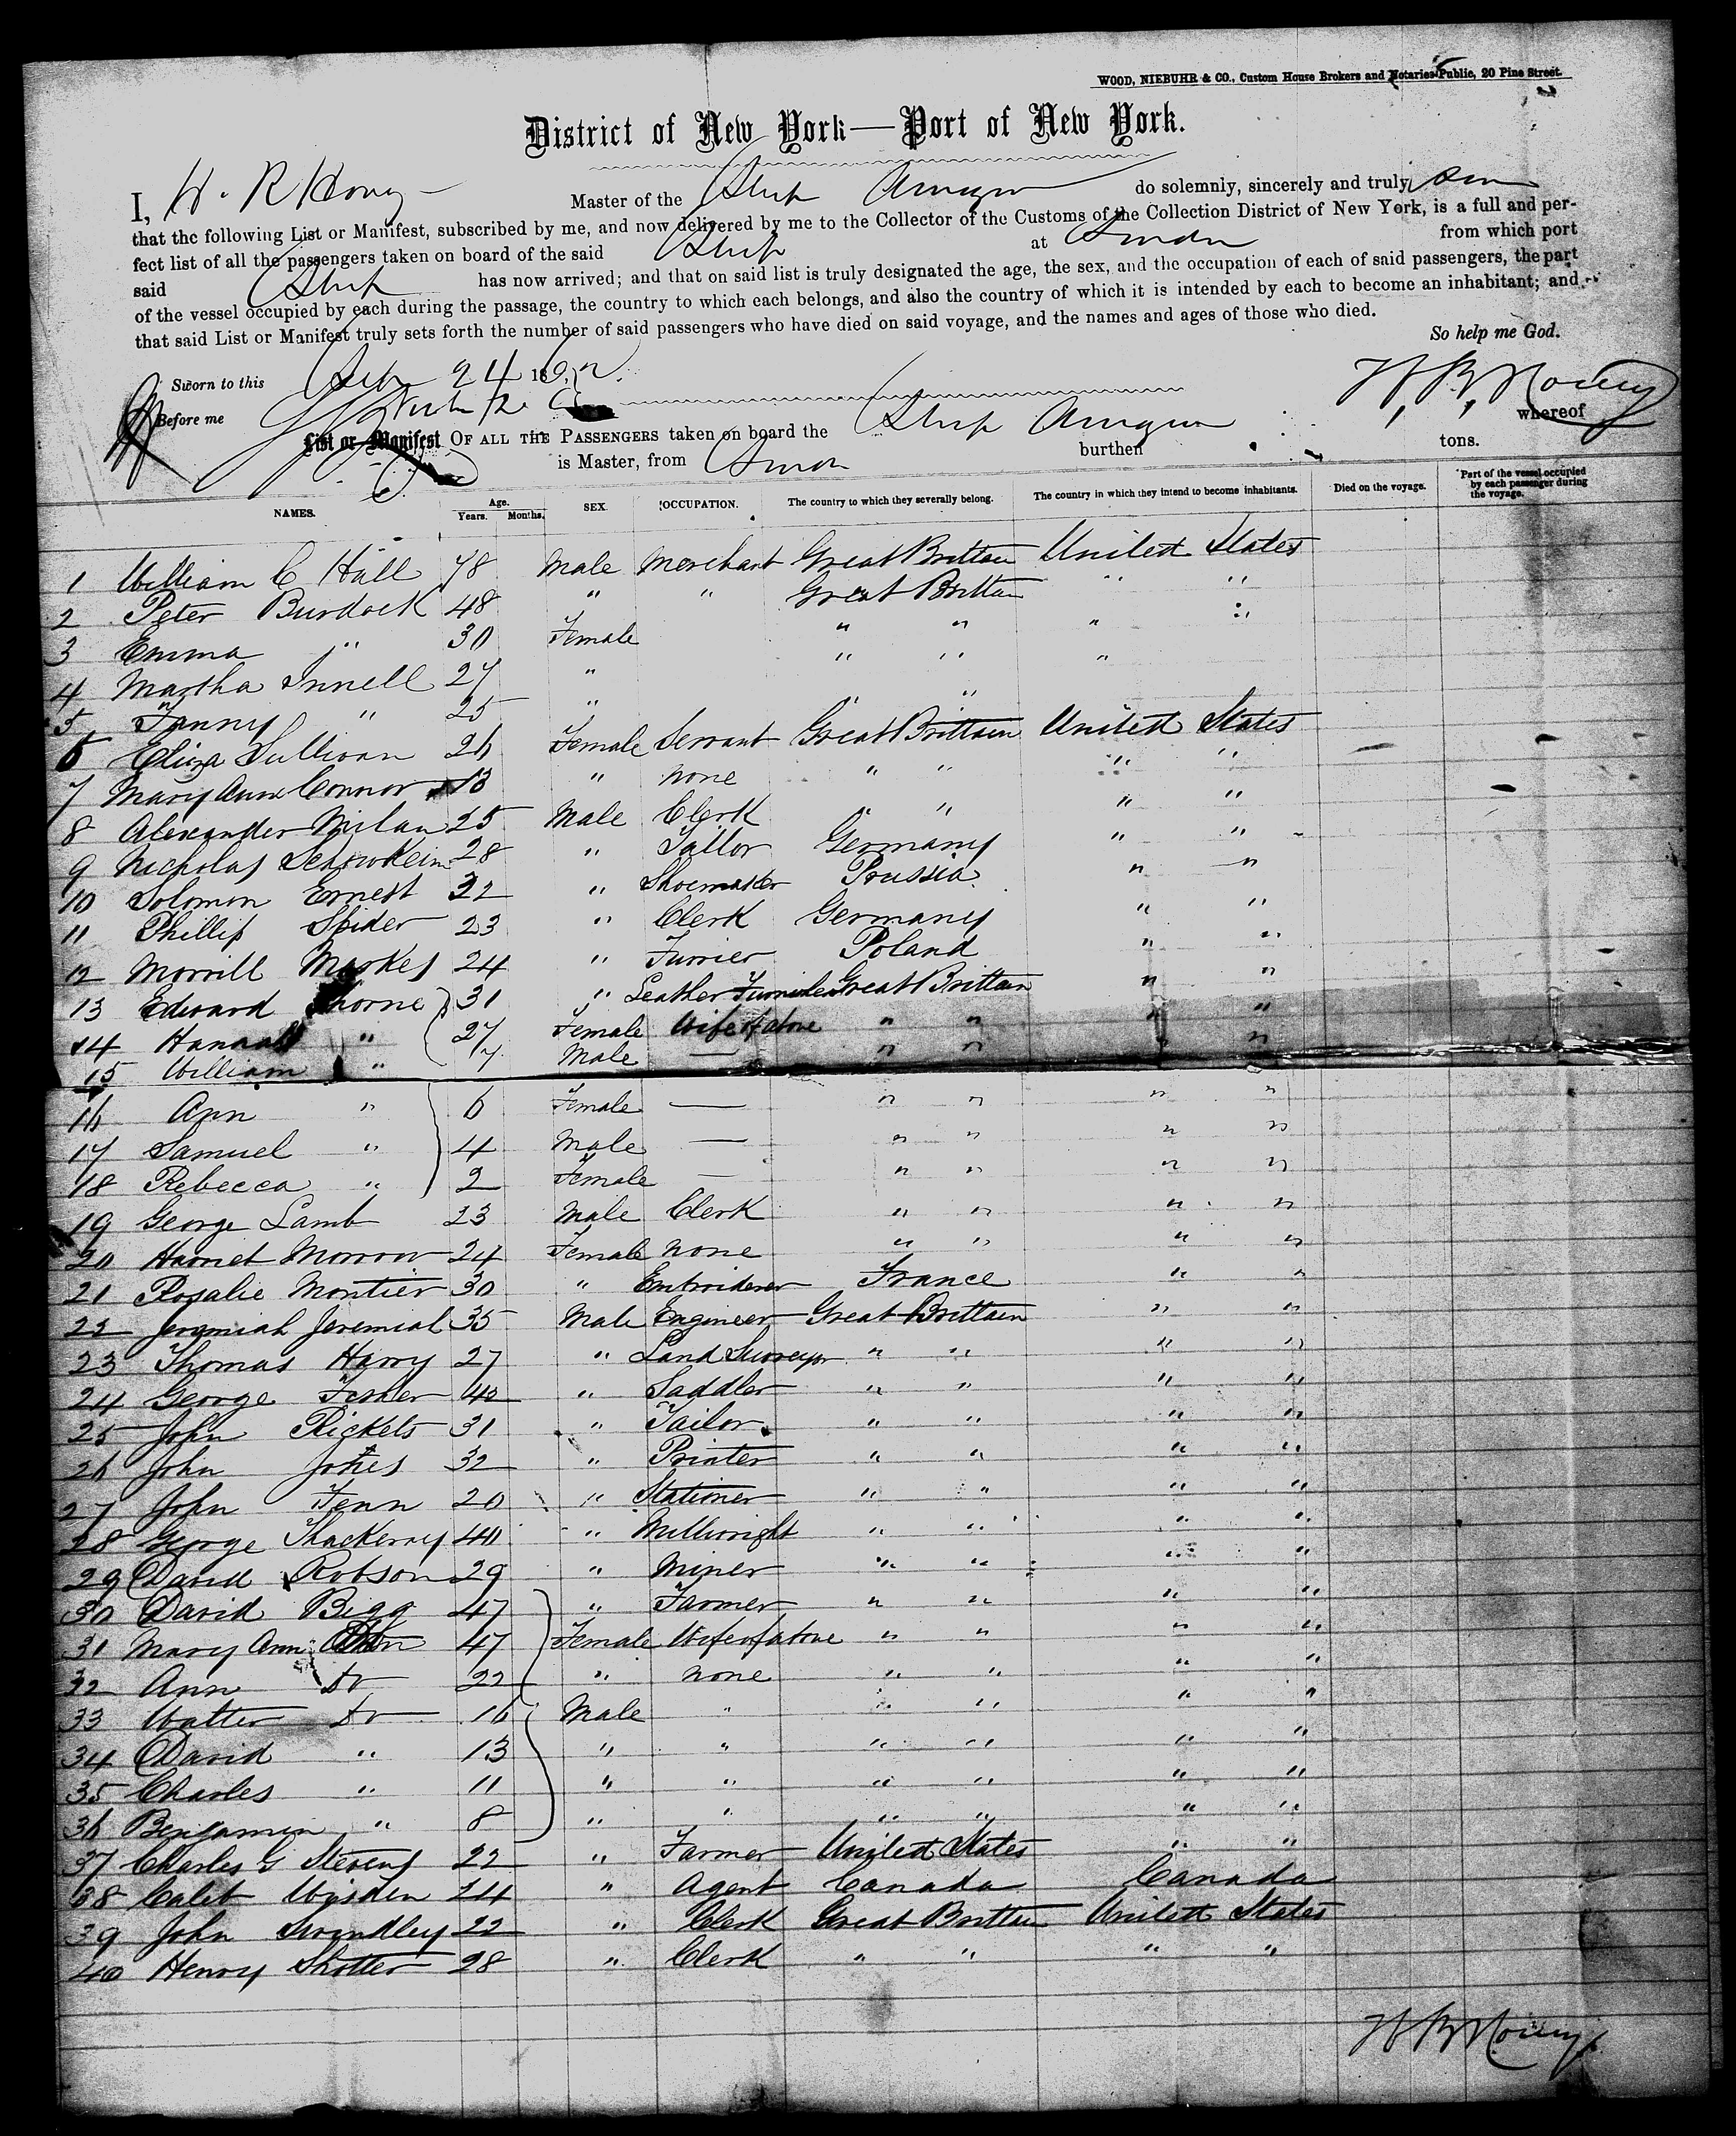 WOOD, NIEBUHR & CO., Custom House Brokers and Notaries Public, 20 Pine Street.
District of New York—Port of New York.
I, Master of the Ship do solemnly, sincerely and truly
that the following List or Manifest, subscribed by me, and now delivered by me to the Collector of the Customs of the Collection District of New York, is a full and per-
fect list of all the passengers taken on board of the said Ship at London from which port
said Ship has now arrived; and that on said list is truly designated the age, the sex, and the occupation of each of said passengers, the part
of the vessel occupied by each during the passage, the country to which each belongs, and also the country of which it is intended by each to become an inhabitant; and
that said List or Manifest truly sets forth the number of said passengers who have died on said voyage, and the names and ages of those who died.
So help me God.
Sworn to this 24 186
Before me
List or Manifest OF ALL THE PASSENGERS taken on board the Ship whereof
is Master, from London burthen tons.
NAMES. Age. Years. Months. SEX. OCCUPATION. The country to which they severally belong. The country in which they intend to become inhabitants. Died on the voyage. Part of the vessel occupied by each passenger during the voyage.
1 William C Hall 78 Male Merchant Great Brittain United States
2 Peter Burdock 48 " " Great Brittain " "
3 Emma " 30 Female " " " "
4 Martha Innell 27 " " " "
5 Fanny " 25 " " "
6 Eliza Sullivan 26 Female Servant Great Brittain United States
7 Mary Ann Connor 13 " none " " " "
8 Alexander Milan 25 Male Clerk " " " "
9 Nicholas 28 " Tailor Germany " "
10 Solomon Ernest 32 " Shoemaker Prussia " "
11 Phillip Spider 23 " Clerk Germany " "
12 Morrill Markes 24 " Furrier Poland " "
13 Edward Thorne 31 " Leather Great Brittain " "
14 Hannah " 27 Female Wife of above " " " "
15 William " 7 Male — " " " "
16 Ann " 6 Female — " " " "
17 Samuel " 4 Male — " " " "
18 Rebecca " 2 Female — " " " "
19 George Lamb 23 Male Clerk " " " "
20 Harriet Morrow 24 Female none " " " "
21 Rosalie Montier 30 " Embroiderer France " "
22 Jeremiah Jeremiah 35 Male Engineer Great Brittain " "
23 Thomas Harry 27 " Land Surveyor " " " "
24 George Fisher 40 " Saddler " " " "
25 John Rickets 31 " Tailor " " " "
26 John Jones 32 " Printer " " " "
27 John Fenn 20 " Stationer " " " "
28 George Thackeray 40 " Millwright " " " "
29 David Robson 29 " Miner " " " "
30 David Bigg 47 " Farmer " " " "
31 Mary Ann 47 Female Wife of above " " " "
32 Ann Do 22 " none " " " "
33 Walter Do 16 Male " " " " "
34 David " 13 " " " " " "
35 Charles " 11 " " " " " "
36 Benjamin " 8 " " " " " "
37 Charles G Stevens 22 " Farmer United States " "
38 Caleb Wigsden 24 " Agent Canada Canada
39 John Swindley 22 " Clerk Great Brittain United States
40 Henry Shotter 28 " Clerk " " " "